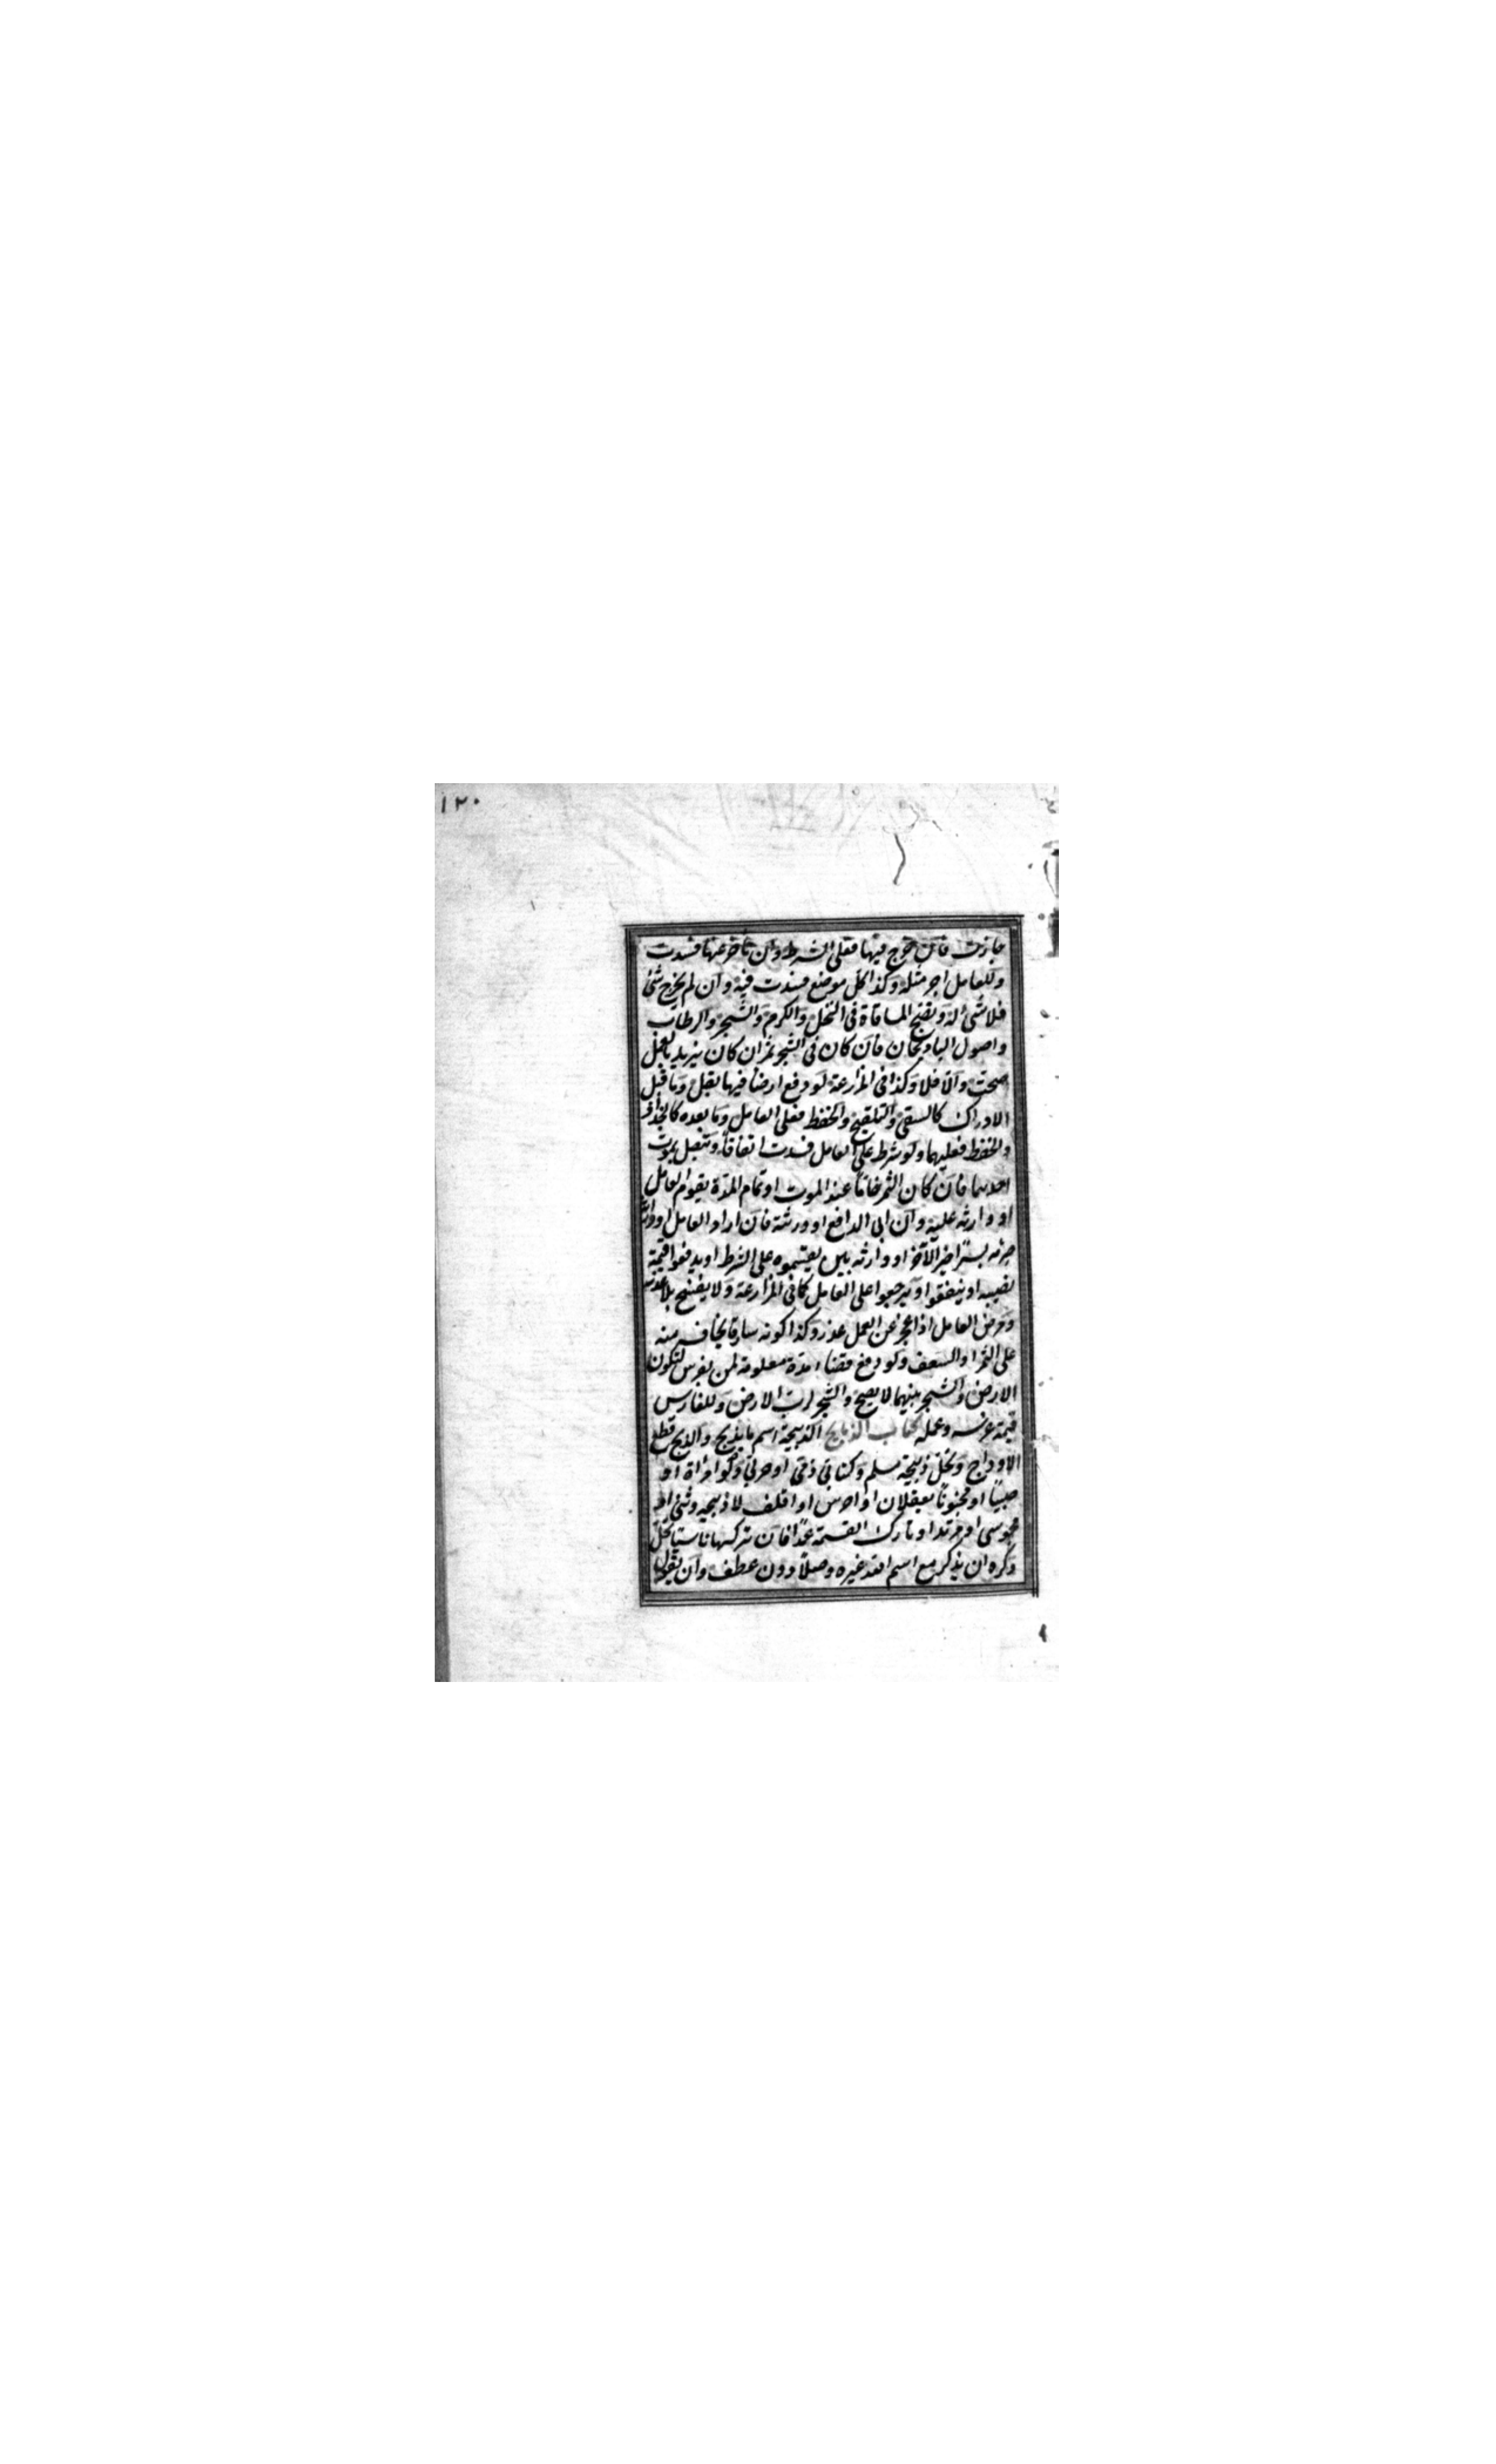 ١٢٠
جازت فان خرج فيها فعلى الشرط وان تأخر عنها فسدت
وللعامل اجر مثله وكذا كل موضع فسدت فيه وان لم يخرج شئ
فلا شئ له وتصح المساقاة فى النخل والكرم والشجر والرطاب
واصول الباذنجان فان كان فى الشجر ثمر ان كان يزيد بالعمل
صحت والا فلا وكذا فى المزارعة لو دفع ارضا فيها بقل وما قبل
الادراك كالسقى والتلقيح والحفظ فعلى العامل وما بعده كالجذاذ
والحفظ فعليهما ولو شرط على العامل فسدت اتفاقا وتبطل بموت
احدهما فان كان الثمر خاما عند الموت او تمام المدة يقوم العامل
او وارثه عليه وان ابى الدافع او ورثته فان اراد العامل او وارثه
صرمه بسرا خير الآخر او وارثه بين ان يقتسموه على الشرط او يدفعوا قيمة
نصيبه او ينفقوا ويرجعوا على العامل كما فى المزارعة ولا يفسخ بلا عذر
ومرض العامل اذا عجز عن العمل عذر وكذا كونه سارقا يخاف منه
على الثمر او السعف ولو دفع فضاء مدة معلومة لمن يغرس لتكون
الارض والشجر بينهما لا يصح والشجر لرب الارض وللغارس
قيمة غرسه وعمله كتاب الذبايح الذبيحة اسم ما يذبح والذبح قطع
الاوداج وتحل ذبيحة مسلم وكتابى ذمى او حربى ولو امرأة او
صبيا او مجنونا يعقلان او اخرس او اقلف لا ذبيحة وثنى او
مجوسى او مرتد او تارك التسمية عمدا فان تركها ناسيا تحل
وكره ان يذكر مع اسم الله غيره وصلا دون عطف وان يقول